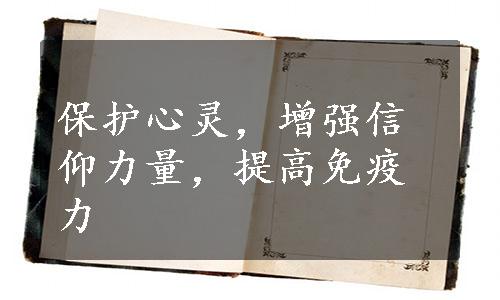 保护心灵，增强信
仰力量，提高免疫
力